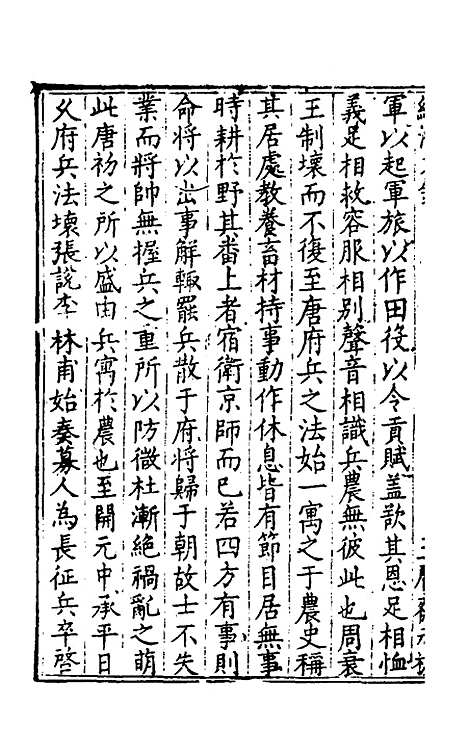 軍以起軍旅以作田役以令貢賦蓋欲其恩足相恤
義足相救容服相別聲音相識兵農無彼此也周衰
王制壞而不復至唐府兵之法始一寓之于農史稱
其居處教養畜材待事動作休息皆有節目居無事
時耕於野其番上者宿衛京師而已若四方有事則
命將以出事解輒罷兵散于府將歸于朝故士不失
業而將帥無握兵之重所以防微杜漸絕禍亂之萌
此唐初之所以盛由兵寓於農也至開元中承平日
久府兵法壞張說李林甫始奏募人為長征兵卒啓